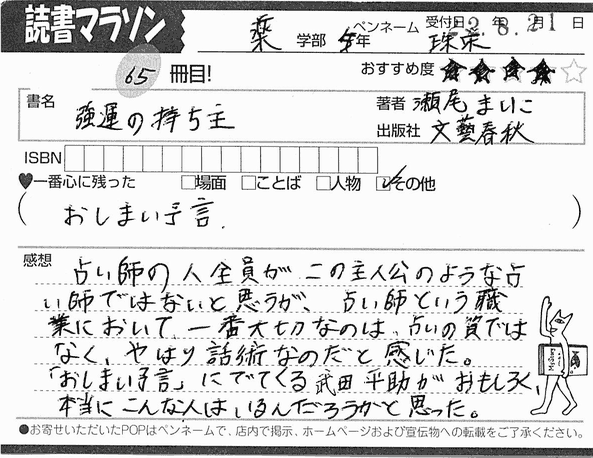 読書マラソン
薬 学部 4年
ペンネーム 珠来
受付日 22年8月21日
65 冊目!
おすすめ度 ★★★★☆
書名 強運の持ち主
著者 瀬尾まいこ
出版社 文藝春秋
ISBN
♥一番心に残った □場面 □ことば □人物 ☑その他
(おしまい予言.)
感想
占い師の人全員がこの主人公のような占
い師ではないと思うが、占い師という職
業において、一番大切なのは、占いの質では
なく、やはり話術なのだと感じた。
「おしまい予言」にでてくる武田平助がおもしろく、
本当にこんな人はいるんだろうかと思った。
●お寄せいただいたPOPはペンネームで、店内で掲示、ホームページおよび宣伝物への転載をご了承ください。